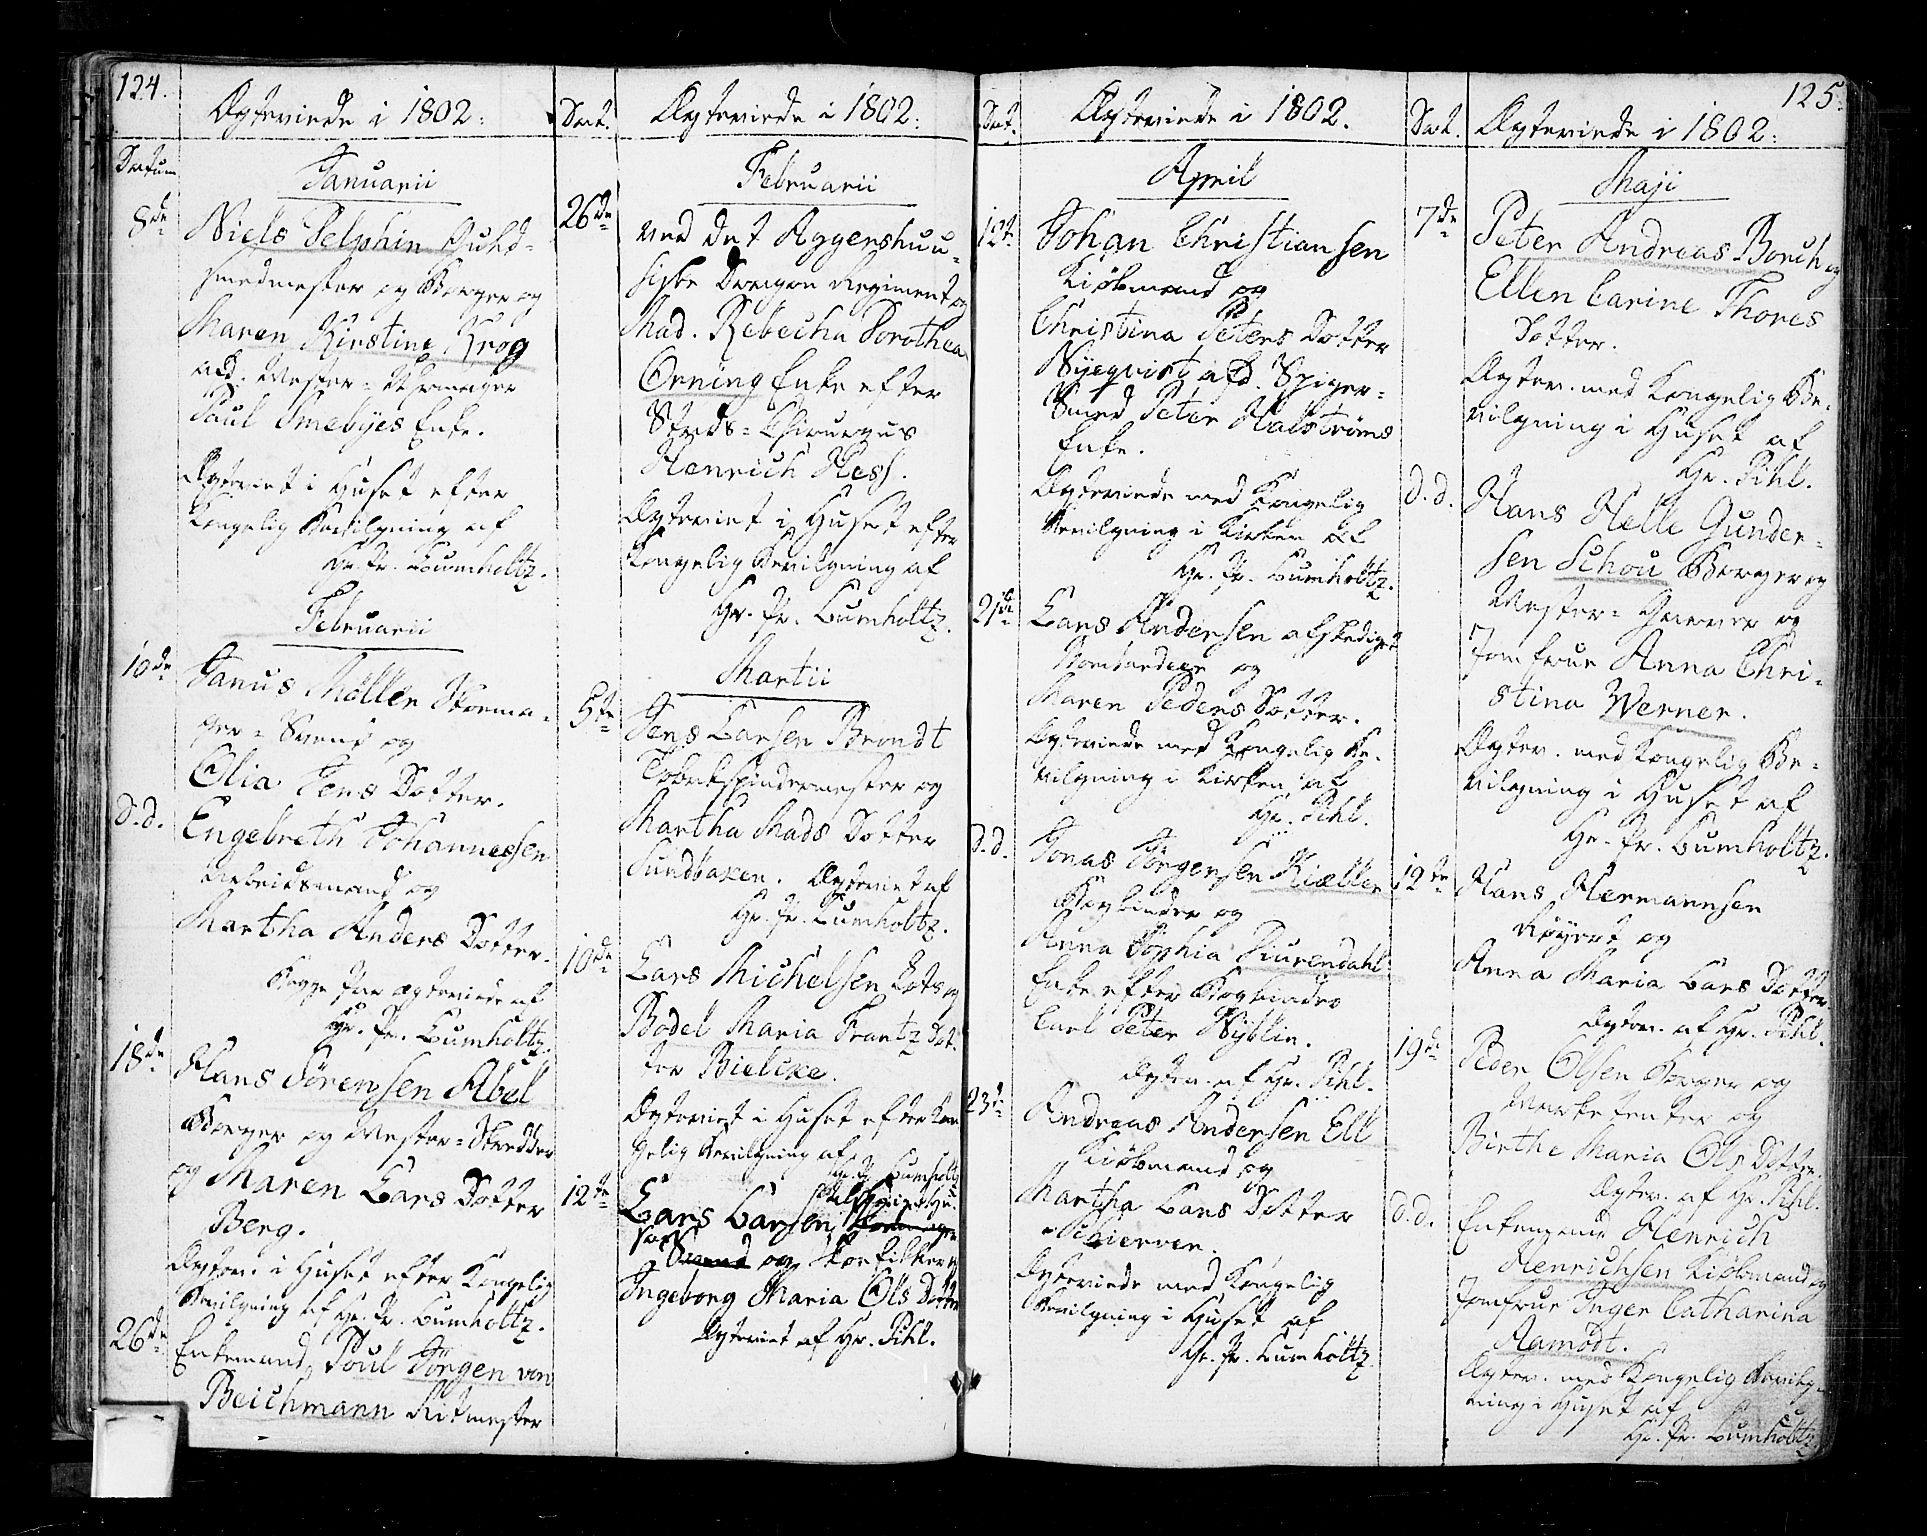 124.
Ægteviede i 1802:
Datum
Januarii
8de
Niels Delphin Guld-
smedmester og Borger og
Maren Kirstine Krog
afd. Mester-Uhrmager
Paul Smebyes Enke.
Ægteviet i Huset efter
Kongelig Bevilgning af
Hr. Pr. Lumholtz.
Februarii
10de
Janus Möller Skoema-
ger-Svend og
Olia Jens Dotter.
d.d.
Engebreth Johannessen
Arbeidsmand og
Martha Anders Dotter.
Begge Par ægteviede af
Hr. Pr. Lumholtz.
18de
Hans Sörensen Abel
Borger og Mester-Skredder
og Maren Lars Dotter
Berg.
Ægtev. i Huset efter Kongelig
Bevilgning af Hr. Pr. Lumholtz.
26de
Enkemand Poul Jörgen von
Beichmann Ritmester
Dat.
Ægteviede i 1802:
Februarii
26de
ved det Aggershuu-
siske Dragon Regiment og
Mad. Rebecha Dorothea
Orning Enke efter
Stads-Chirurgus
Henrich Hess.
Ægteviet i Huset efter
Kongelig Bevilgning af
Hr. Pr. Lumholtz.
Martii
5te
Jens Larsen Brondt
Tobakspindermester og
Martha Mads Dotter
Sundbaken. Ægteviet af
Hr. Pr. Lumholtz.
10de
Lars Michelsen Lots og
Bodel Maria Frantz Dot-
ter Bielcke.
Ægteviet i Huset efter Kon-
gelig Bevilgning af
Hr. Pr. Lumholtz
12te
Lars Larsen
Svend og Skoeflikker og
Ingeborg Maria Ols Dotter
Ægteviet af Hr. Pihl.
Dat.
Ægteviede i 1802.
April
12te
Johan Christiansen
Kiöbmand og
Christina Peters Dotter
Nyeqvist afd. Spiger-
Smed Peter Halströms
Enke.
Ægteviede med Kongelig
Bevilgning i Kirken af
Hr. Pr. Lumholtz.
21de
Lars Andersen afskediget
Bombardeer og
Maren Peders Dotter.
Ægteviede med Kongelig Be-
vilgning i Kirken af
Hr. Pihl.
d.d.
Jonas Jörgensen Kiæller
Bogbinder og
Anna Sophia Tiurendahl
Enke efter Bogbinder
Carl Peter Nyblin.
Ægtev. af Hr. Pihl.
23de
Andreas Andersen Ell
Kiöbmand og
Martha Lars Dotter
Schierven.
Ægteviede med Kongelig
Bevilgning i Huset af
Hr. Pr. Lumholtz.
125.
Dat.
Ægteviede i 1802:
Maji
7de
Peter Andreas Borch og
Ellen Carine Thores
Dotter.
Ægtev. med Kongelig Be-
vilgning i Huset af
Hr. Pihl.
d.d.
Hans Helle Gunder-
sen Schou Borger og
Mester-Garver og
Jomfrue Anna Chri-
stina Werner.
Ægtev. med Kongelig Be-
vilgning i Huset af
Hr. Pr. Lumholtz.
12te
Hans Hermannsen
og
Anna Maria Lars Dotter
Ægtev. af Hr. Pihl.
19de
Peder Olsen Borger og
Marketenter og
Birthe Maria Ols Dotter.
Ægtev. af Hr. Pihl.
d.d.
Enkemand Henrich
Henrichsen Kiöbmand og
Jomfrue Inger Catharina
Aamodt.
Ægtev. med Kongelig Bevilg-
ning i Huset af
Hr. Pr. Lumholtz